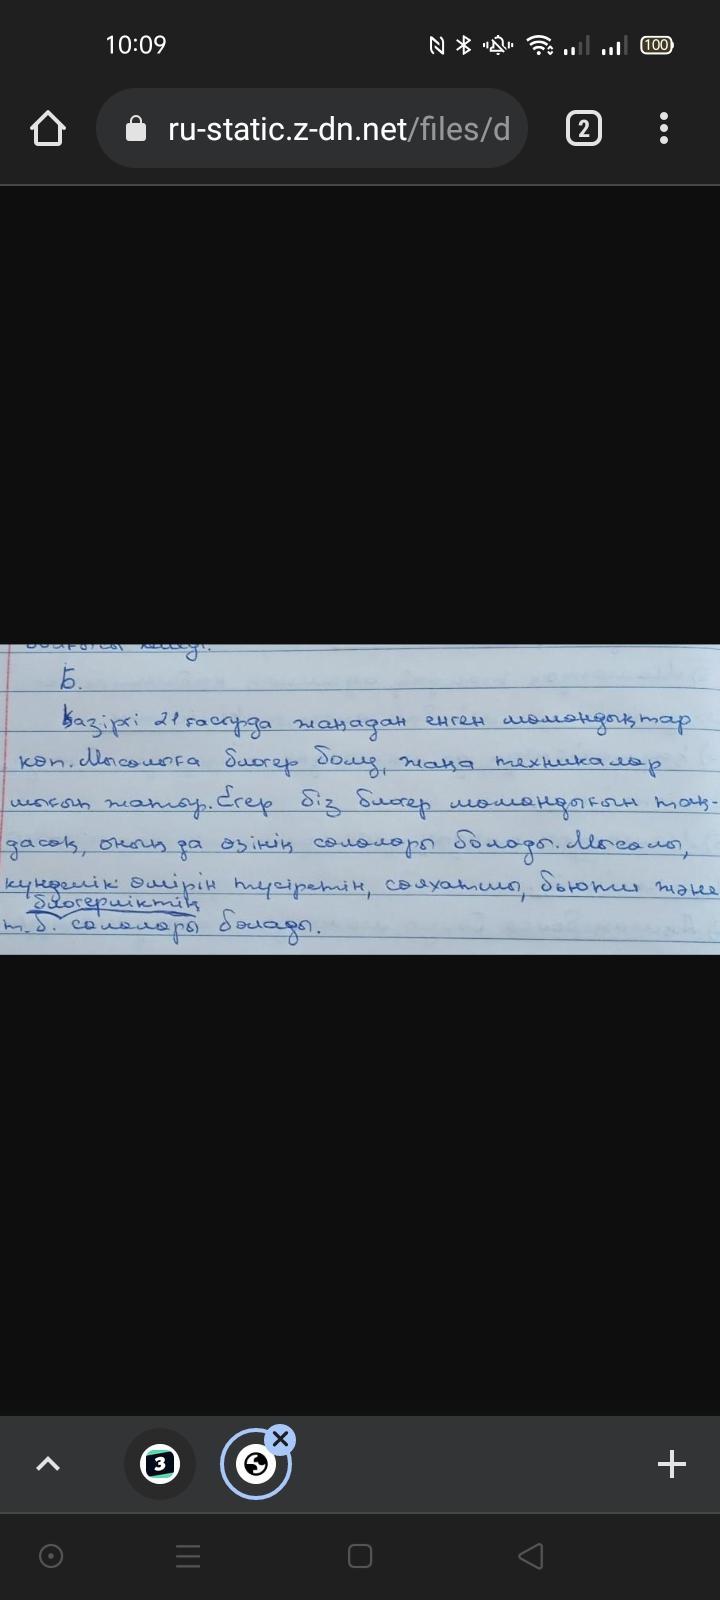 10:09
100
ru-static.z-dn.net/files/d
2
Б.
Қазіргі 21 ғасырда жаңадан енген мамандықтар
көп. Мысалыға блогер болу, жаңа техникалар
шығып жатыр. Егер біз блогер мамандығын таң-
дасақ, оның да өзінің салалары болады. Мысалы,
күнделік өмірін түсіретін, саяхатшы, бьюти және
блогерліктің
т.б. салалары болады.
3